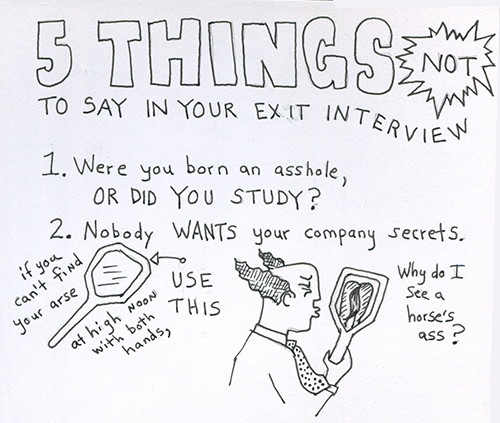 5 THINGS
NOT
TO SAY IN YOUR EXIT INTERVIEW
1. Were you born an asshole,
OR DID YOU STUDY?
2. Nobody WANTS your company secrets.
if you
can't find
your arse
at high NOON
with both
hands,
USE
THIS
Why do I
see a
horse's
ass?